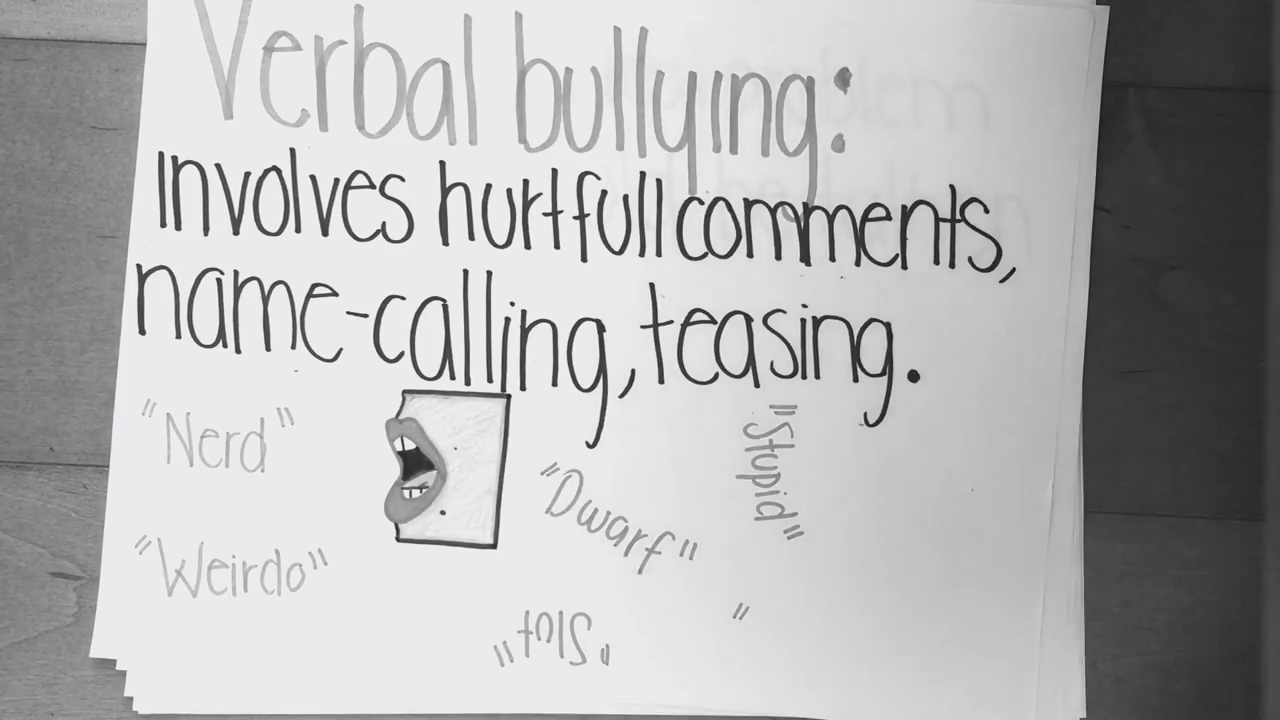 Verbal bullying:
Involves hurtfull comments,
name-calling, teasing.
"Nerd"
"Stupid"
"Dwarf"
"Weirdo"
"Slut"
"